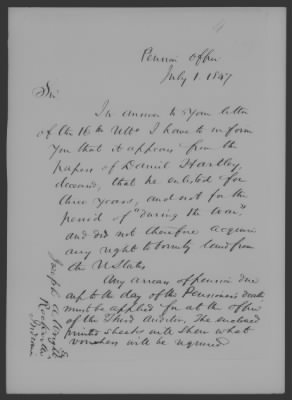 Pension Office
July 1. 1847
Sir,
In answer to your letter
of the 16th Ulto I have to inform
you that it appears from the
papers of Daniel Hartley,
deceased, that he enlisted for
three years, and not for the
period of "during the War"
and did not therefore acquire
any right to bounty land from
the U States
Any arrears of pension due
up to the day of the Pensioner's death
must be applied for at the office
of the Third Auditor. The enclosed
printed sheets will show what
vouchers will be required
Joseph A. Wright
Rockville
Indiana